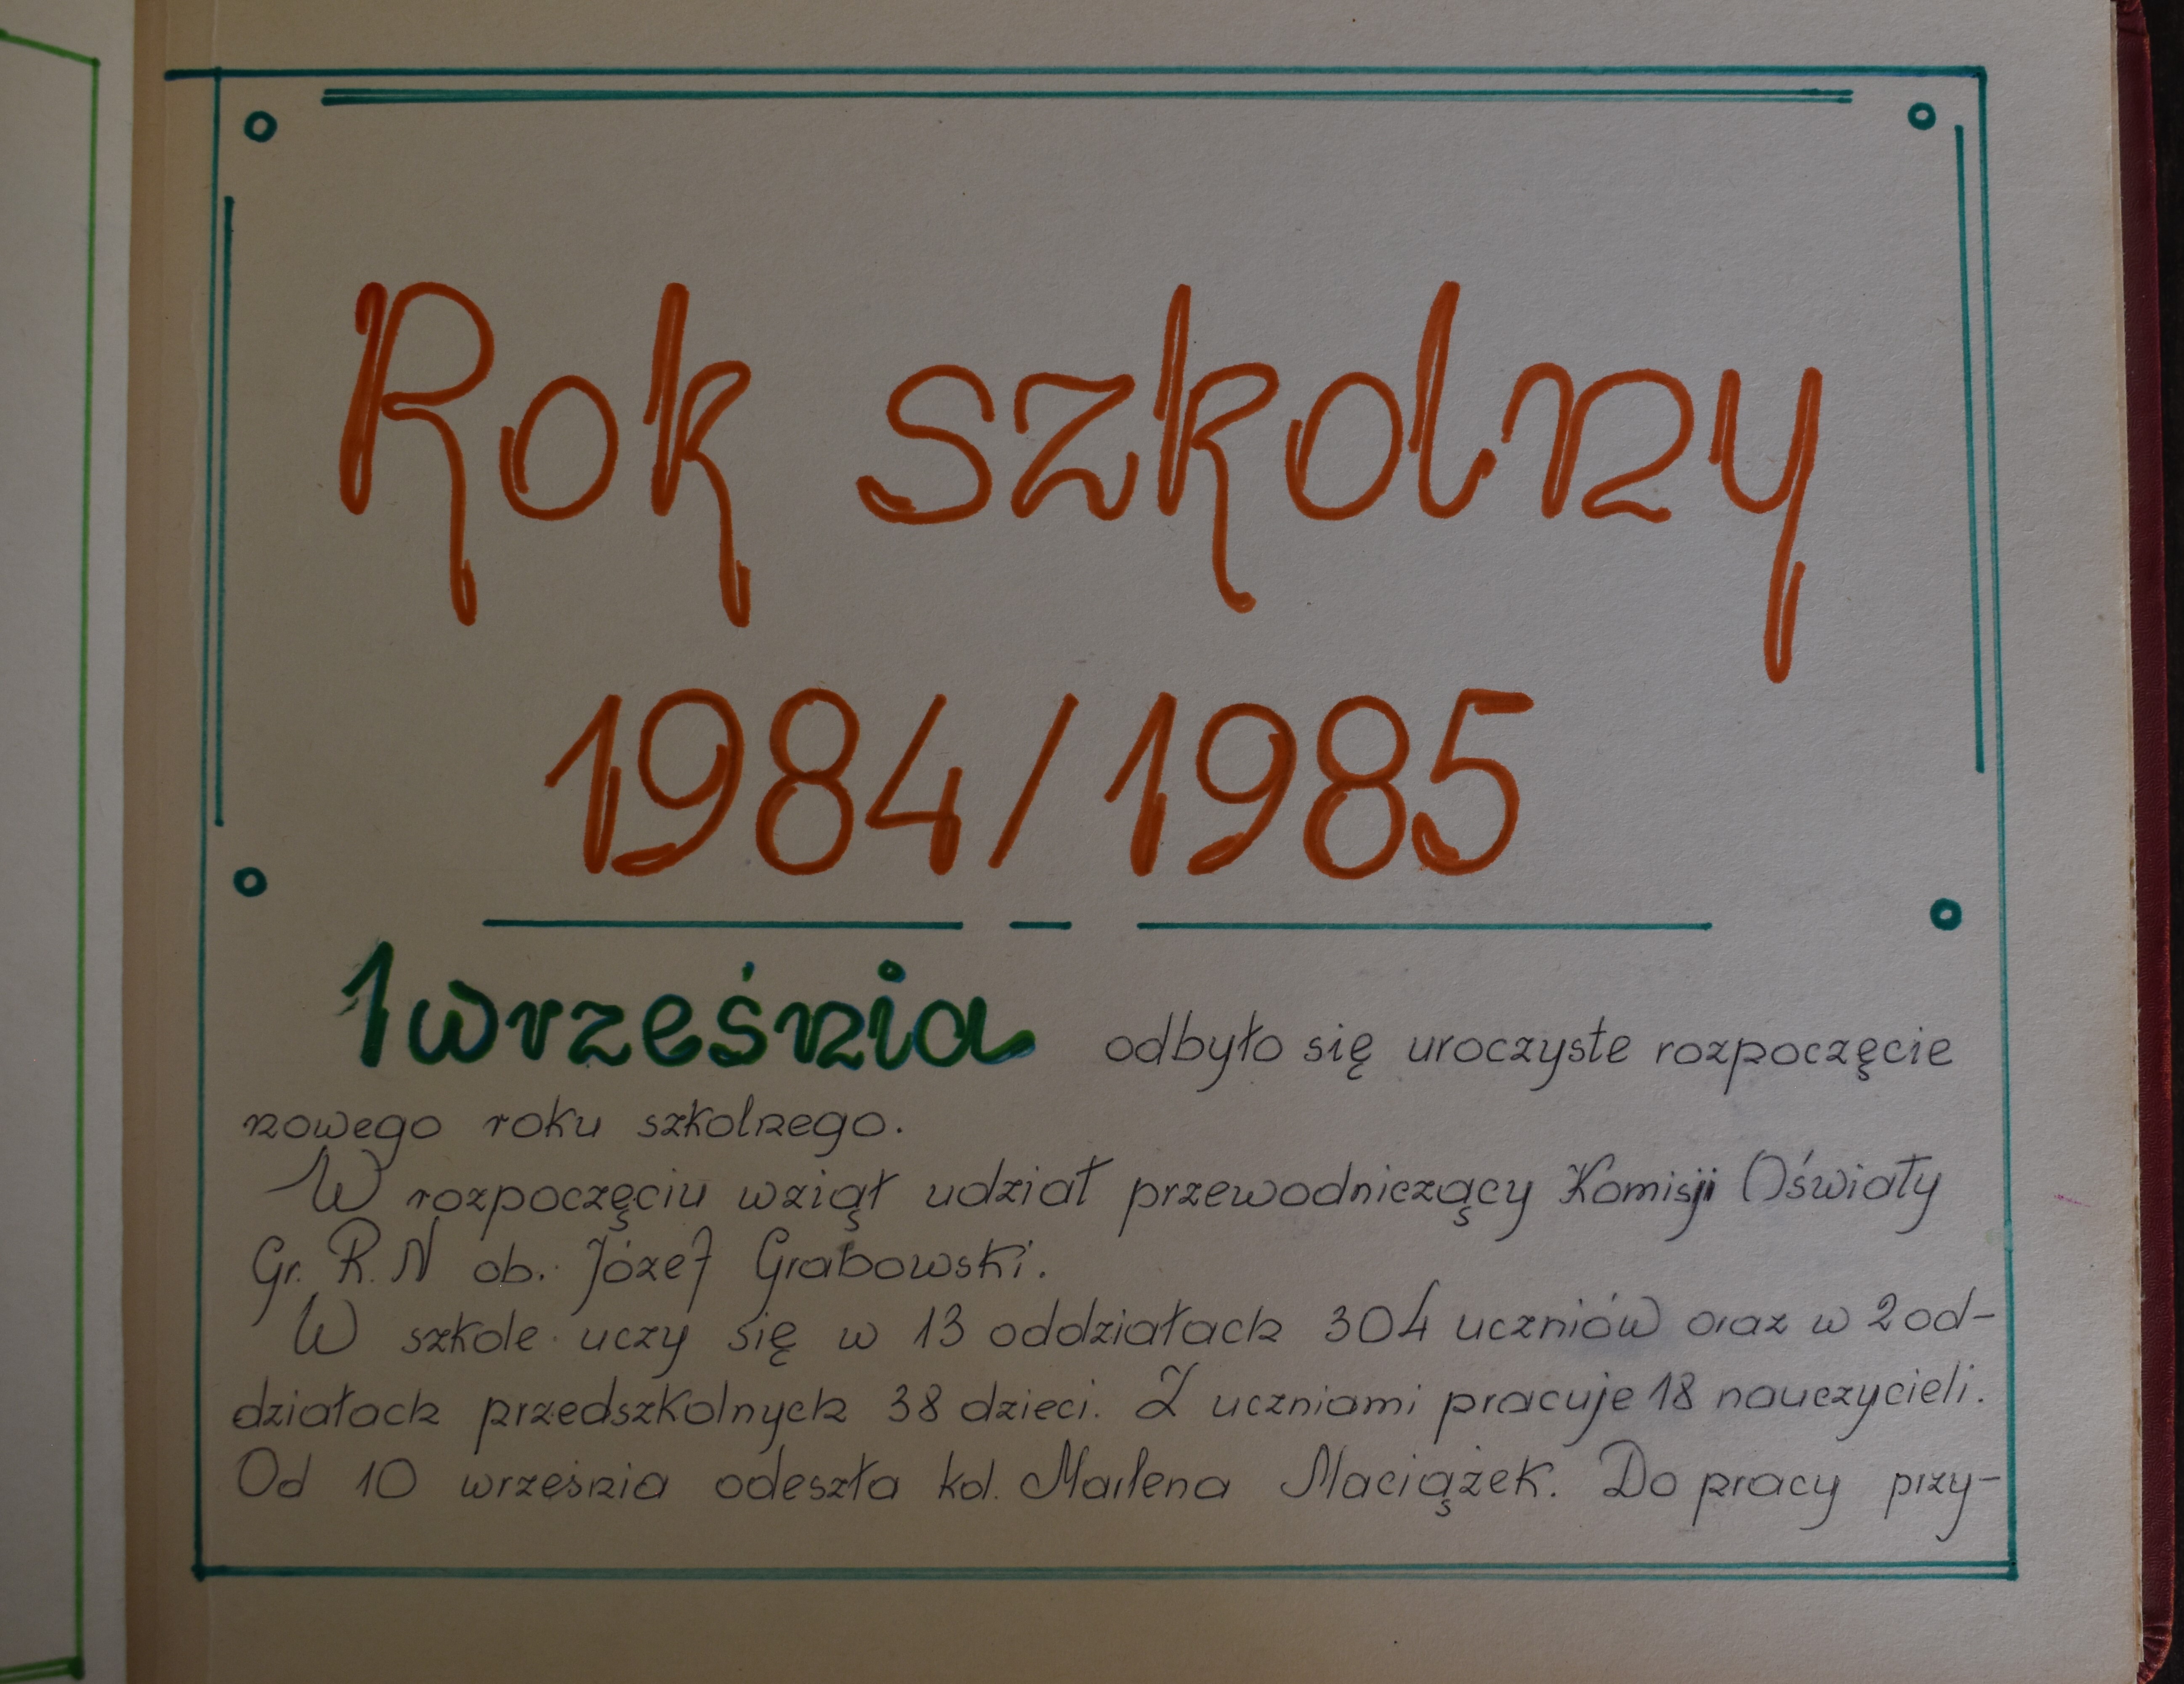 Rok szkolny
1984/1985
1 września odbyło się uroczyste rozpoczęcie
nowego roku szkolnego.
W rozpoczęciu wziął udział przewodniczący Komisji Oświaty
Gr. R. N ob. Józef Grabowski.
W szkole uczy się w 13 oddziałach 304 uczniów oraz w 2 od-
działach przedszkolnych 38 dzieci. Z uczniami pracuje 18 nauczycieli.
Od 10 września odeszła kol. Marlena Maciążek. Do pracy przy-